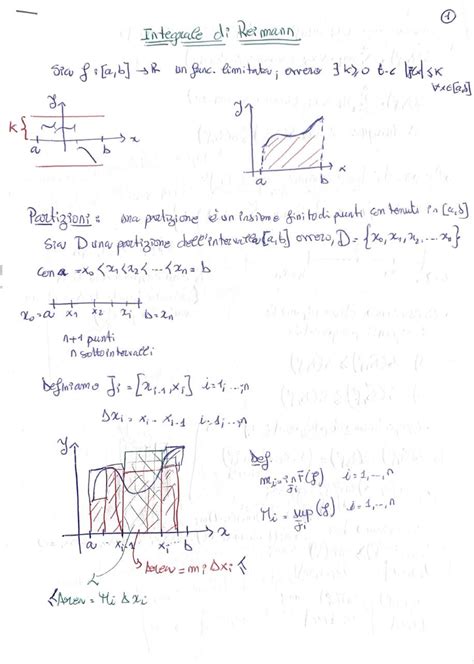 1
Integrale di Reimann
Sia f:[a,b] → R un func. limitata, ovvero ∃ k≥0 t.c |f(x)|≤K
∀x∈[a,b]
y
K
a
b
x
y
a
b
x
Partizioni: una partizione è un insieme finito di punti contenuti in [a,b]
Sia D una partizione dell'intervallo [a,b] ovvero, D={x₀,x₁,x₂,...xₙ}
con a=x₀<x₁<x₂<...<xₙ=b
x₀=a x₁ x₂ xᵢ b=xₙ
n+1 punti
n sottointervalli
Definiamo Jᵢ=[xᵢ₋₁,xᵢ] i=1,...,n
Δxᵢ = xᵢ - xᵢ₋₁ i=1,...,n
y
Def
mᵢ=inf(f) i=1,...,n
Jᵢ
Mᵢ=sup(f) i=1,...,n
Jᵢ
a xᵢ₋₁ xᵢ b x
Area=mᵢΔxᵢ
Area=MᵢΔxᵢ